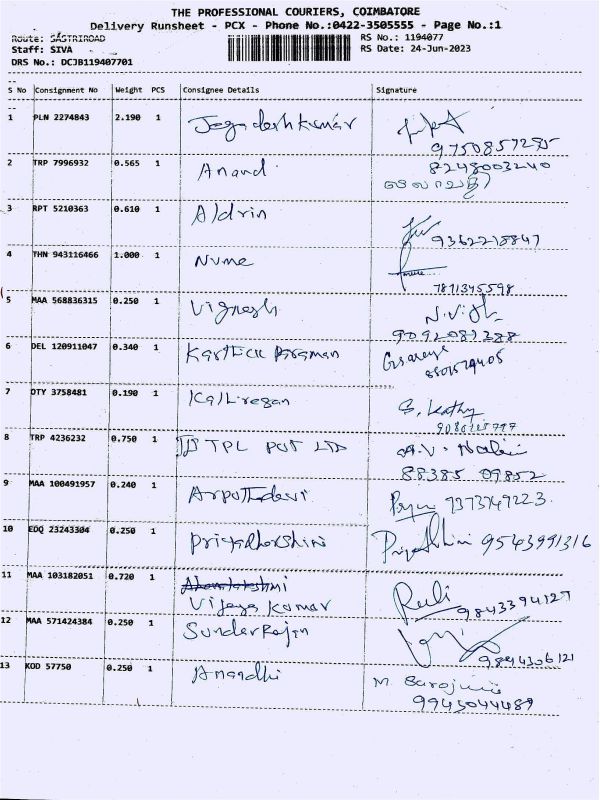 THE PROFESSIONAL COURIERS, COIMBATORE
Delivery Runsheet - PCX - Phone No.:0422-3505555 - Page No.:1
Route: SASTRIROAD
RS No.: 1194077
Staff: SIVA
RS Date: 24-Jun-2023
DRS No.: DCJB119407701
S No Consignment No Weight PCS Consignee Details Signature
1 PLN 2274843 2.190 1 Jegadeshkumar
9750857295
2 TRP 7996932 0.565 1 Anand 8248003240
3 RPT 5210363 0.610 1 Aldrin
9362218847
4 THN 943116466 1.000 1 Nvme
7811345598
5 MAA 568836315 0.250 1 Vignesh
9092087288
6 DEL 120911047 0.340 1 Karthick
7 OTY 3758481 0.190 1 S. Kathy
8 TRP 4236232 0.750 1 TPL PVT LTD
88385 09852
9 MAA 100491957 0.240 1 Arputhadevi
10 EDQ 23243304 0.250 1 Priyadharshini 9543991316
11 MAA 103182051 0.720 1
Vijaya Kumar 9843394127
12 MAA 571424384 0.250 1 SundarRajan
9894306121
13 KOD 57750 0.250 1 Anandhi M. Sarojini
9943044489